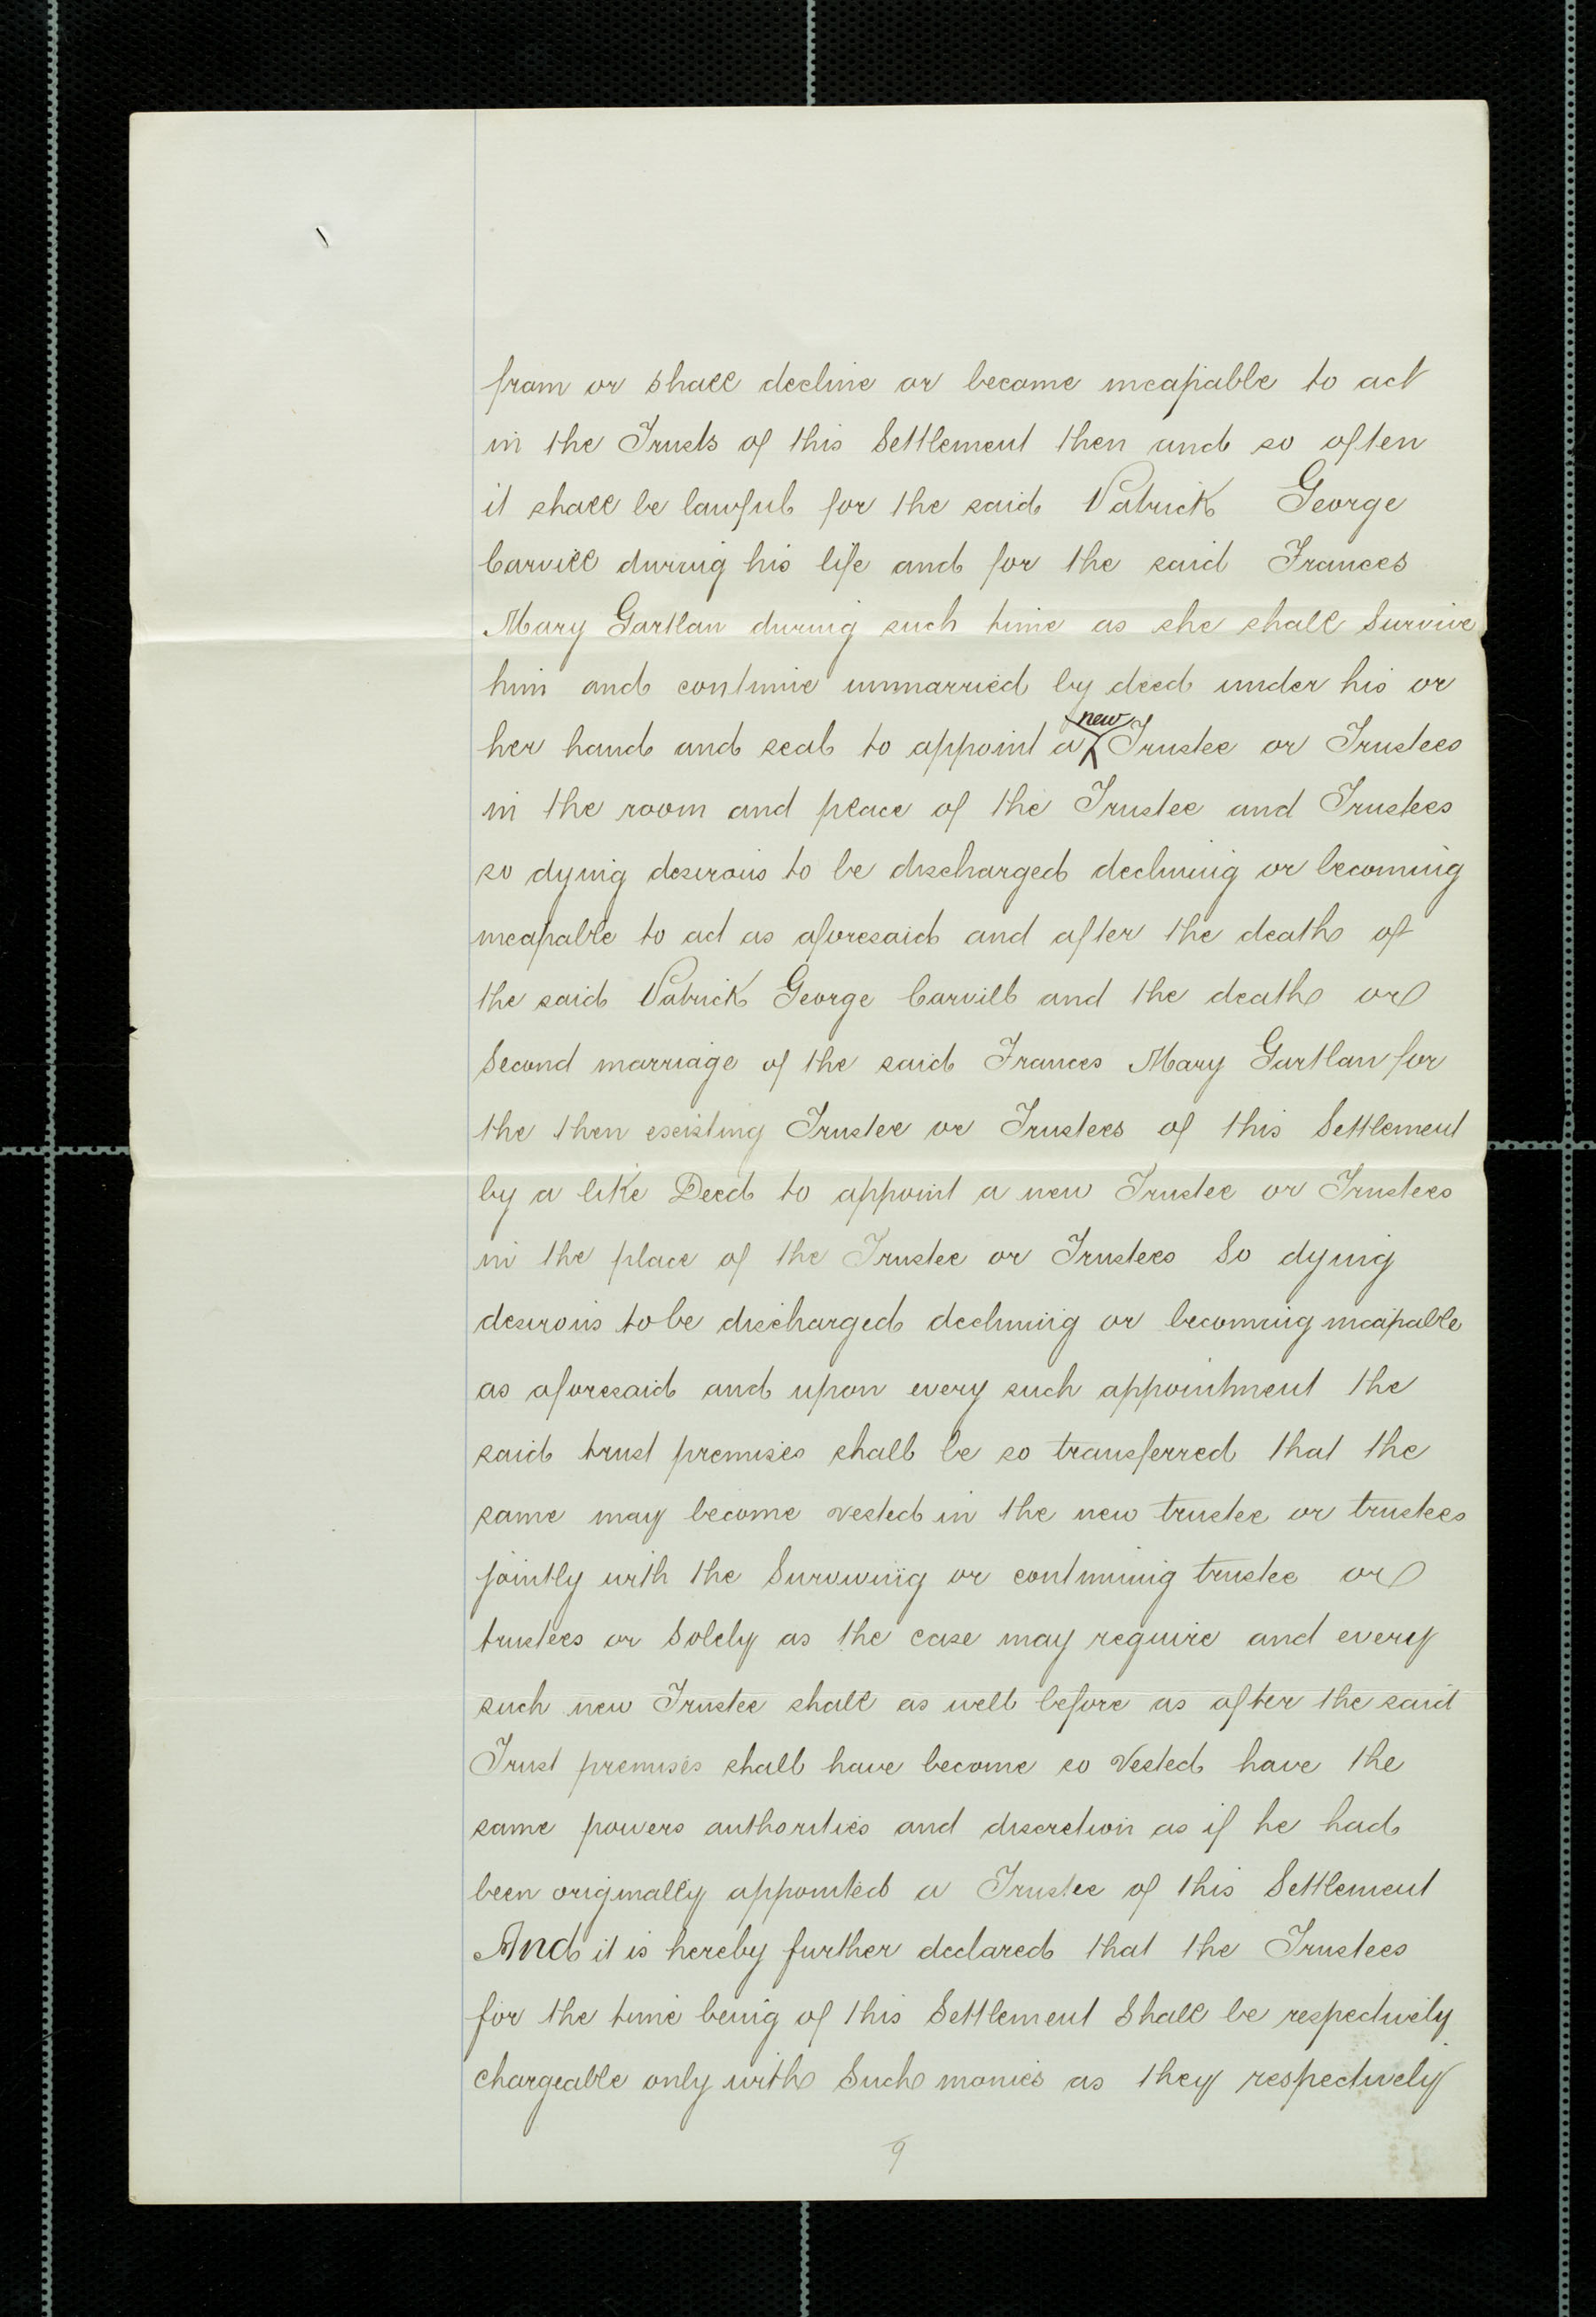 from or shall decline or become incapable to act
in the Trusts of this Settlement then and so often
it shall be lawful for the said Patrick George
Carvill during his life and for the said Frances
Mary Gartlan during such time as she shall Survive
him and continue unmarried by deed under his or
her hand and seal to appoint a new Trustee or Trustees
in the room and place of the Trustee and Trustees
so dying desirous to be discharged declining or becoming
incapable to act as aforesaid and after the death of
the said Patrick George Carvill and the death or
Second marriage of the said Frances Mary Gartlan for
the then existing Trustee or Trustees of this Settlement
by a like Deed to appoint a new Trustee or Trustees
in the place of the Trustee or Trustees So dying
desirous to be discharged declining or becoming incapable
as aforesaid and upon every such appointment the
said trust premises shall be so transferred that the
same may become vested in the new trustee or trustees
jointly with the Surviving or continuing trustee or
trustees or Solely as the case may require and every
such new Trustee shall as well before as after the said
Trust premises shall have become so Vested have the
same powers authorities and discretion as if he had
been originally appointed a Trustee of this Settlement
And it is hereby further declared that the Trustees
for the time being of this Settlement Shall be respectively
chargeable only with Such monies as they respectively
9